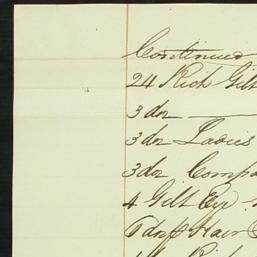 Continued
24 Rich Gilt
3 doz
3 doz Ladies
3 doz Compa
4 Gilt Eye
6 doz Hair